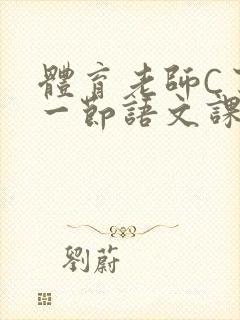 體育老師C
一節語文課
劉蔚